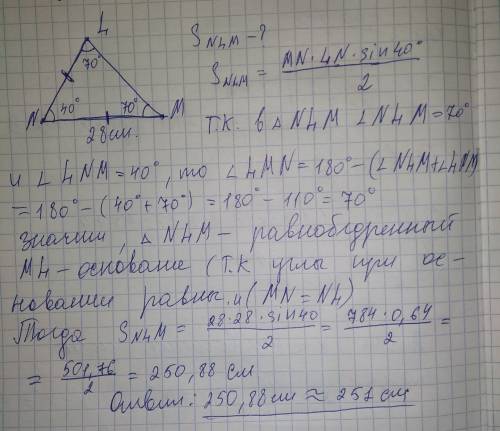 L
70°
N 40° 70° M
28 см.
S NLM - ?
S NLM = MN · LN · sin 40° / 2
Т.К. в △ NLM ∠ NLM = 70°
и ∠ LNM = 40°, то ∠ LMN = 180° - (∠ NLM + ∠ LNM)
= 180° - (40° + 70°) = 180° - 110° = 70°
Значит, △ NLM - равнобедренный
ML - основание (Т.К углы при ос-
новании равны. и (MN = NL)
Тогда S NLM = 28 · 28 · sin 40 / 2 = 784 · 0,64 / 2 =
= 501,76 / 2 = 250,88 см
Ответ: 250,88 см ≈ 251 см